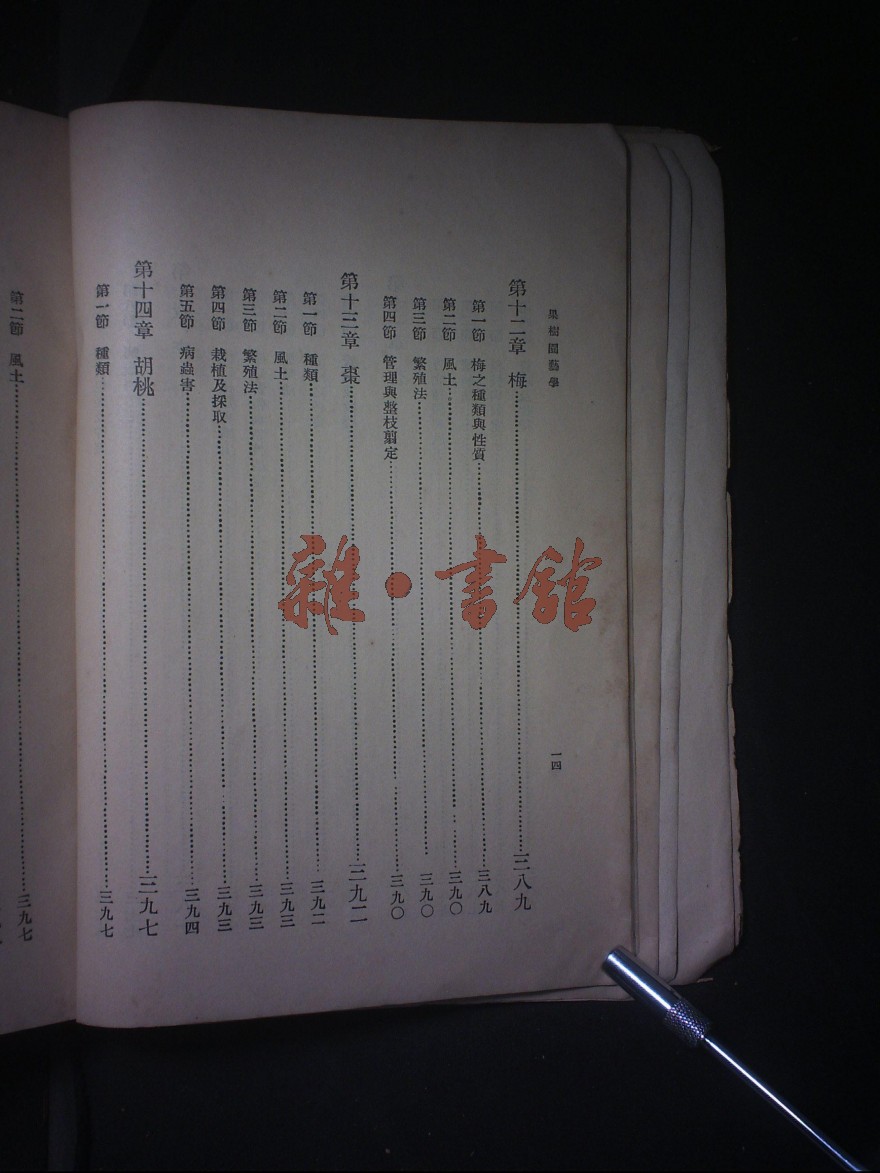 果樹園藝學
一四
第十二章 梅……三八九
第一節 梅之種類與性質……三八九
第二節 風土……三九〇
第三節 繁殖法……三九〇
第四節 管理與整枝剪定……三九〇
第十三章 棗……三九二
第一節 種類……三九二
第二節 風土……三九三
第三節 繁殖法……三九三
第四節 栽植及採取……三九三
第五節 病蟲害……三九四
第十四章 胡桃……三九七
第一節 種類……三九七
第二節 風土……三九七
雜·書館